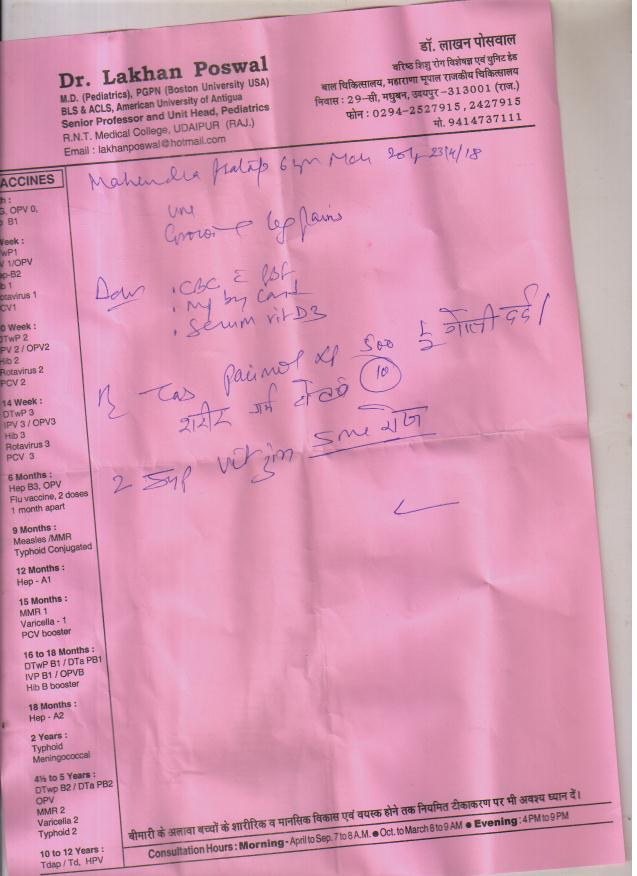 Dr. Lakhan Poswal
M.D. (Pediatrics), PGPN (Boston University USA)
BLS & ACLS, American University of Antigua
Senior Professor and Unit Head, Pediatrics
R.N.T. Medical College, UDAIPUR (RAJ.)
Email : lakhanposwal@hotmail.com
डॉ. लाखन पोसवाल
वरिष्ठ शिशु रोग विशेषज्ञ एवं युनिट हेड
बाल चिकित्सालय, महाराणा भूपाल राजकीय चिकित्सालय
निवास : 29-सी, मधुबन, उदयपुर-313001 (राज.)
फोन : 0294-2527915, 2427915
मो. 9414737111
Mahendra Pratap 6 yr 23/4/18
leg pains
Adv
• CBC
• Serum vit D3
500 1/2 गोली दर्द /
10
शरीर गर्म
2 Syp 5ml रोज
ACCINES
OPV 0,
B1
Week :
1/OPV
ep-B2
b 1
otavirus 1
CV1
0 Week :
DTwP 2
PV 2 / OPV2
Hib 2
Rotavirus 2
PCV 2
14 Week :
DTwP 3
IPV 3 / OPV3
Hib 3
Rotavirus 3
PCV 3
6 Months :
Hep B3, OPV
Flu vaccine, 2 doses
1 month apart
9 Months :
Measles /MMR
Typhoid Conjugated
12 Months :
Hep - A1
15 Months :
MMR 1
Varicella - 1
PCV booster
16 to 18 Months :
DTwP B1 / DTa PB1
IVP B1 / OPVB
Hib B booster
18 Months :
Hep - A2
2 Years :
Typhoid
Meningococcal
4½ to 5 Years :
DTwp B2 / DTa PB2
OPV
MMR 2
Varicella 2
Typhoid 2
10 to 12 Years :
Tdap / Td, HPV
बीमारी के अलावा बच्चों के शारीरिक व मानसिक विकास एवं वयस्क होने तक नियमित टीकाकरण पर भी अवश्य ध्यान दें।
Consultation Hours : Morning - April to Sep. 7 to 8 A.M. ● Oct. to March 8 to 9 AM ● Evening : 4 PM to 9 PM